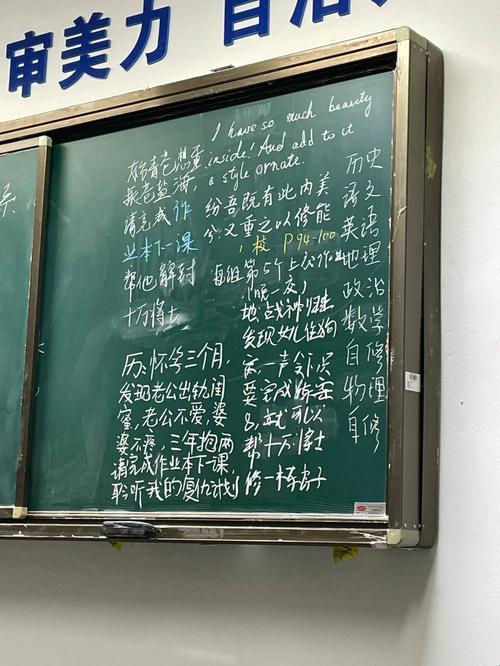 审美力
I have so much beauty
inside! And add to it
a style ornate.
纷吾既有此内美
兮又重之以修能
请完成作
业本下一课
帮他解封
十万将士
校 P94-100
每组第5个上交作业
历史
语文
英语
地理
政治
数学
自修
物理
自修
历:怀孕三个月,
发现老公出轨闺
蜜,老公不爱,婆
婆不疼,三年抱两
请完成作业本下一课,
聆听我的复仇计划
发现
一声令
要完成
8,就可以
帮十万将士
修一栋房子